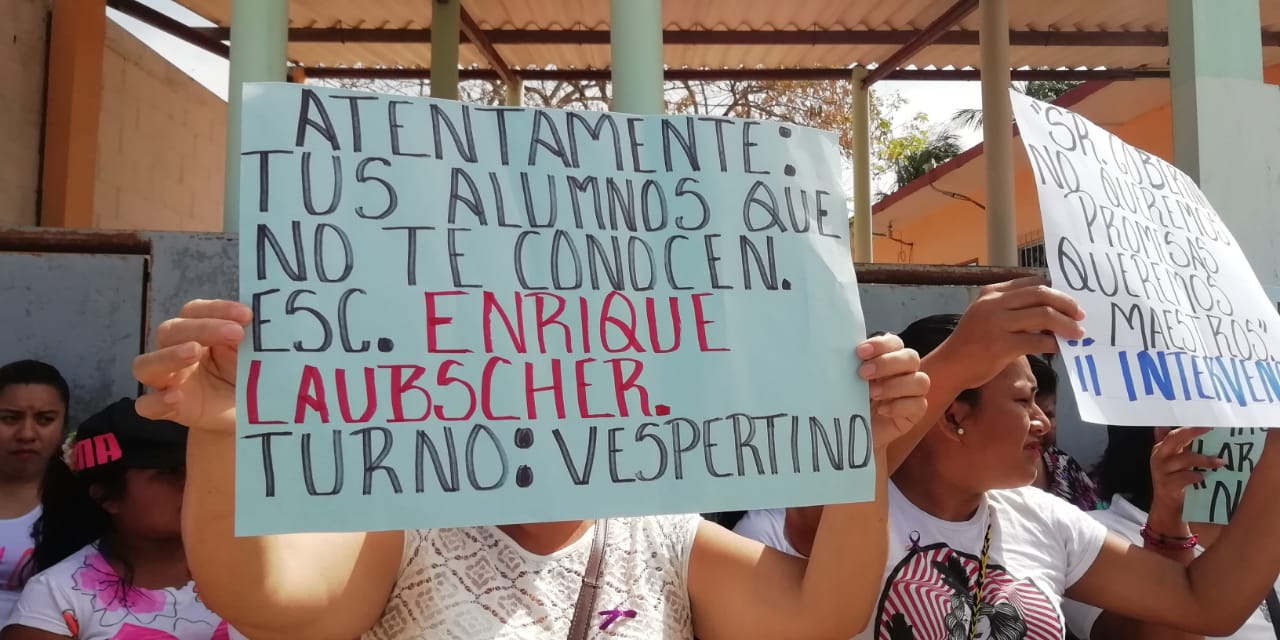 ATENTAMENTE:
TUS ALUMNOS QUE
NO TE CONOCEN.
ESC. ENRIQUE
LAUBSCHER.
TURNO: VESPERTINO
"SR. GOBERN
NO QUEREMOS
PROMESAS
QUEREMOS
MAESTROS".
¡¡ INTERVEN
LAR
N
MA